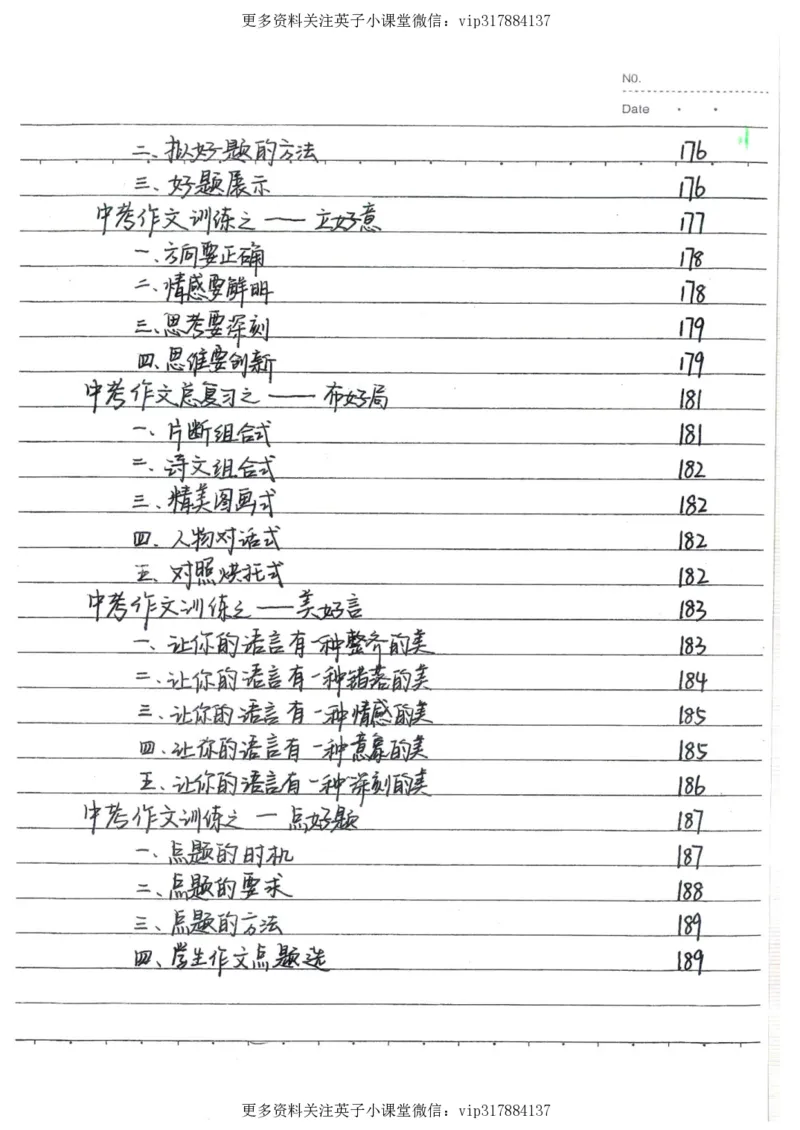 更多资料关注英子小课堂微信：vip317884137
NO.
Date
二、拟好题的方法 176
三、好题展示 176
中考作文训练之——立好意 177
一、方向要正确 178
二、情感要鲜明 178
三、思考要深刻 179
四、思维要创新 179
中考作文总复习之——布好局 181
一、片断组合式 181
二、诗文组合式 182
三、精美图画式 182
四、人物对话式 182
五、对照烘托式 182
中考作文训练之——美好言 183
一、让你的语言有一种整齐的美 183
二、让你的语言有一种错落的美 184
三、让你的语言有一种情感的美 185
四、让你的语言有一种意象的美 185
五、让你的语言有一种深刻的美 186
中考作文训练之一点好题 187
一、点题的时机 187
二、点题的要求 188
三、点题的方法 189
四、学生作文点题选 189
更多资料关注英子小课堂微信：vip317884137